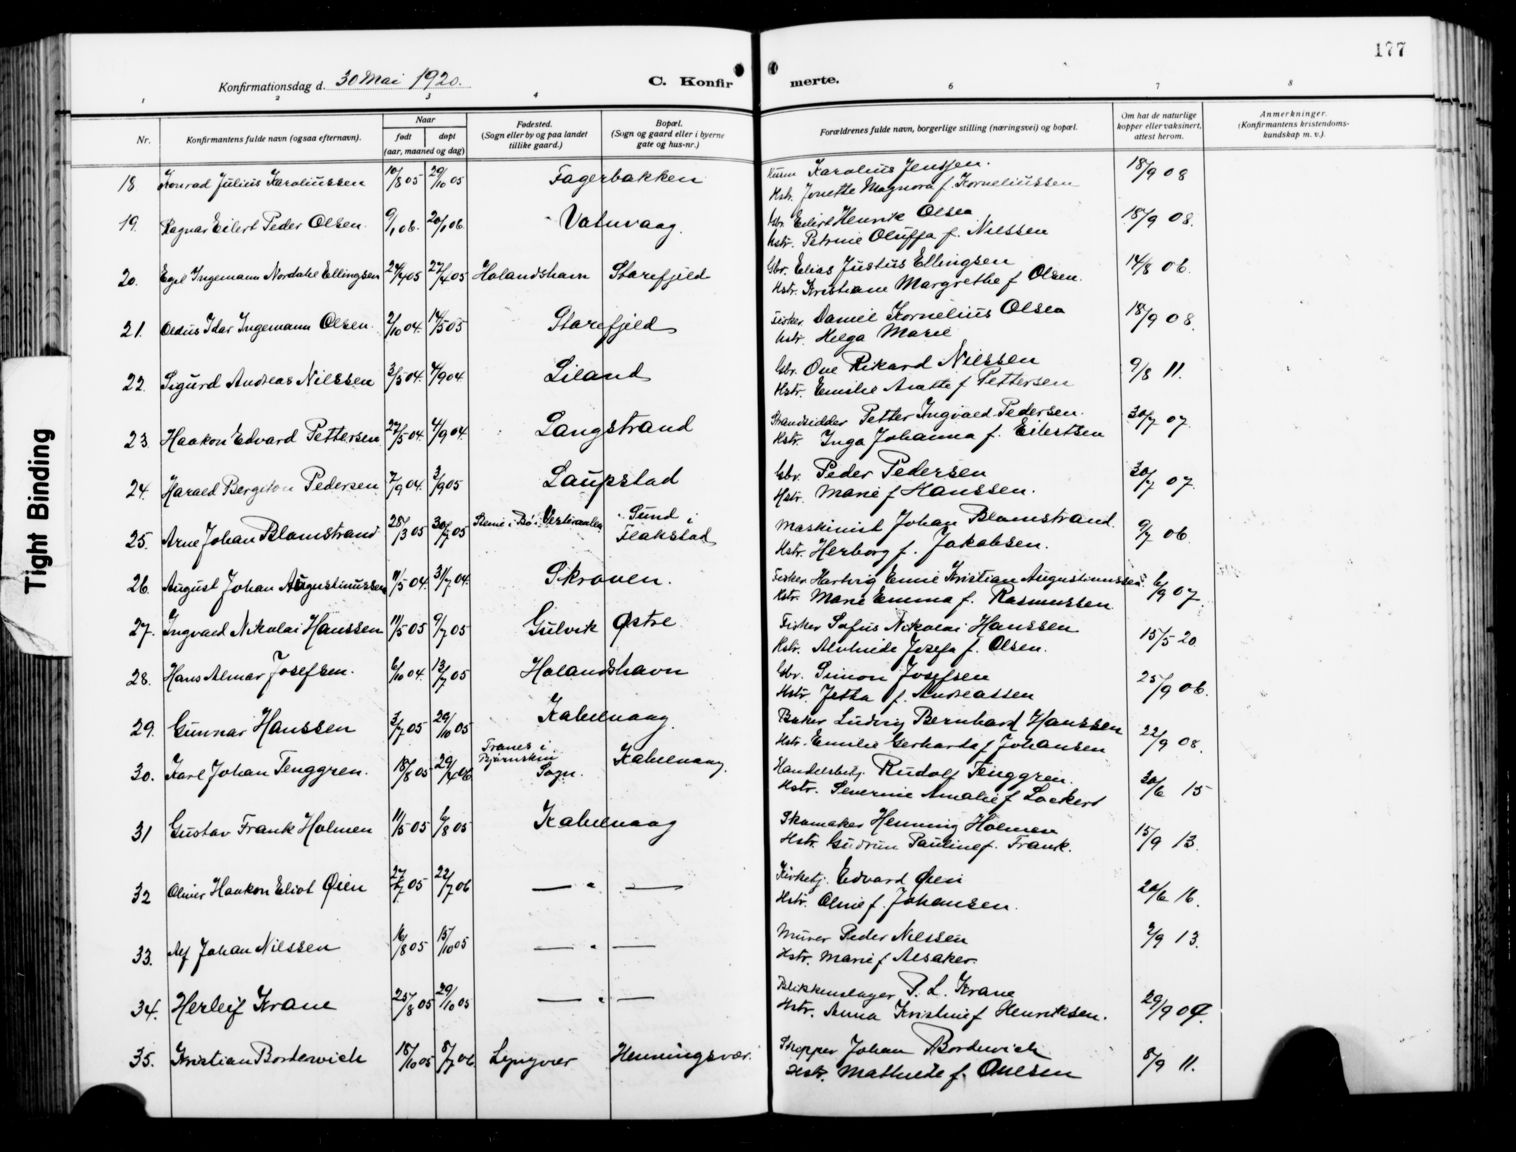 177
Konfirmationsdag d. 30 Mai 1920.
C. Konfirmerte.
1 2 3 4 6 7 8
Nr. Konfirmantens fulde navn (ogsaa efternavn). Naar født døpt (aar, maaned og dag) Fødested. (Sogn eller by og paa landet tillike gaard.) Bopæl. (Sogn og gaard eller i byerne gate og hus-nr.) Forældrenes fulde navn, borgerlige stilling (næringsvei) og bopæl. Om hat de naturlige kopper eller vaksinert, attest herom. Anmerkninger. (Konfirmantens kristendomskundskap m. v.).
18 Konrad Julius Karoliussen 10/8 05 29/10 05 Fagerbakken Karolius Jenssen. 18/9 08
Hstr. Jonette Magnora f. Korneliussen
19. Ragnar Eilert Peder Olsen 9/1 06. 20/1 06 Vatnvaag. Gbr. Eilert Henrik Olsen 18/9 08.
Hstr. Petrine Oluffa f. Nilssen
20. Egil Ingemann Nordahl Ellingsen 05 05 Holandshavn Storefjeld Gbr. Elias Justus Ellingsen 14/8 06.
Hstr. Kristiane Margrethe f Olsen.
21. Idar Ingemann Olsen 2/10 04. 14/5 05 Storefjeld Fisker Daniel Kornelius Olsen 18/9 08.
Hstr. Helga Marie
22. Sigurd Andreas Nilssen 3/5 04. 4/9 04. Liland Gbr. Ove Rikard Nilssen 9/8 11.
Hstr. Emilie Anette f Pettersen
23. Haakon Edvard Pettersen 27/5 04. 4/9 04. Langstrand Strandsidder Petter Ingvald Pedersen. 30/7 07.
Hstr. Inga Johanna f. Eilertsen
24. Harald Bergiton Pedersen 7/9 04. 3/9 05 Laupstad Gbr. Peder Pedersen 30/7 07.
Hstr. Marie f Hanssen.
25. Arne Johan Blomstrand 25/3 05 30/7 05 i Bø i Vesteraalen Sund i Flakstad Maskinist Johan Blomstrand. 9/7 06.
Hstr. Herborg f. Jakobsen.
26. August Johan Augustinussen 11/5 04. 31/7 04. Skroven. Fisker Hartvig Emil Kristian Augustinussen 6/9 07.
Hstr. Marie Emma f. Rasmussen
27. Ingvald Nikolai Hanssen 11/5 05 9/7 05 Gulvik Østre Fisker Sofus Nikolai Hanssen 15/5 20
Hstr. Alvhilde Josefa f. Olsen.
28. Hans Almar Josefsen. 6/10 04. 13/7 05 Holandshavn Gbr. Simon Josefsen 25/9 06.
Hstr. Jetta f. Andreassen
29. Gunnar Hanssen 3/7 05 29/10 05 Kabelvaag. Baker Ludvig Bernhard Hanssen 22/9 08.
Hstr. Emilie Gerharda f Johansen
30. Karl Johan Tenggren. 18/8 05 Tranes i Bjørnskin Sogn. Kabelvaag. Handelsbetj. Rudolf Tenggren. 20/6 15
Hstr. Severine Amalie f Lockert
31 Gustav Frank Holmen 11/5 05 6/8 05 Kabelvaag Skomaker Henning Holmen 15/9 13.
Hstr. Gudrun Pauline f. Frank.
32 Oliver Haakon Eliot Øien 27/7 05 22/7 06 — " — Kirketj. Edvard Øien 20/6 16.
Hstr. Oline f. Johansen.
33. Alf Johan Nilssen 16/8 05 15/10 05 — " — Murer Peder Nilssen 2/9 13.
Hstr. Marie f Alsaker
34. Herleif Krane 25/8 05 29/10 05 — " — Blikkenslager P. L. Krane 29/9 09.
Hstr. Anna Kristine f Henriksen.
35. Kristian Bordewich 18/10 05 8/7 06 Lyngvær Henningsvær. Skipper Johan Bordewich 8/9 11.
Hstr. Mathilde f. Ovesen
Tight Binding